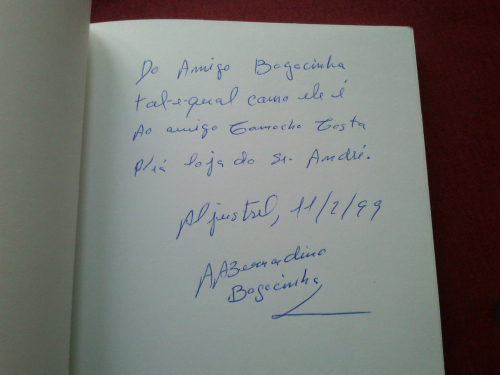 Do Amigo Bagacinha
tal-e-qual como ele é
Ao amigo Camacho Costa
p'rá loja do Sr. André.
Aljustrel, 11/2/99
AABernardino
Bagacinha